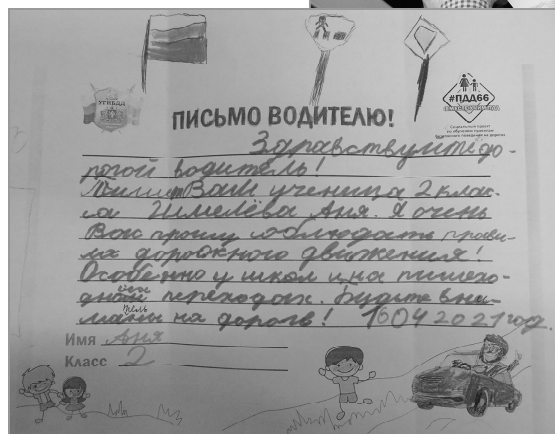 УГИБДД
#ПДД66
ПИСЬМО ВОДИТЕЛЮ!
Здравствуйте до-
рогой водитель!
Пишет Вам ученица 2 клас-
са Шмелёва Аня. Я очень
Вас прошу соблюдать прави-
ла дорожного движения!
Особенно у школ и на пишехо-
дных переходах. Будьте вни-
мательны на дороге! 16 04 2021 год.
Имя Аня
Класс 2